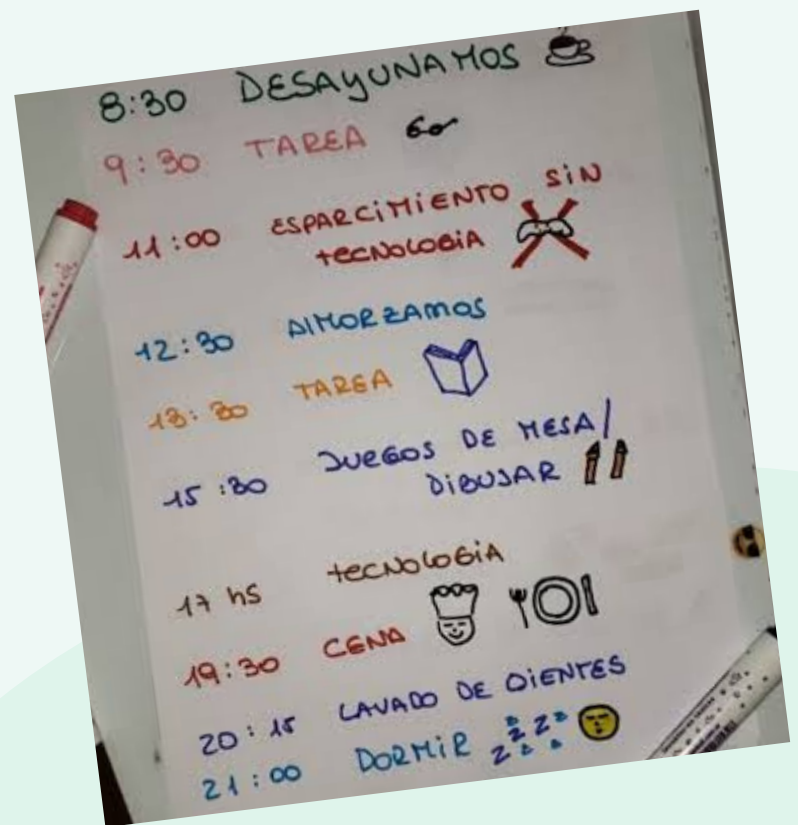 8:30 DESAYUNAMOS
9:30 TAREA
11:00 ESPARCIMIENTO SIN
TECNOLOGIA
12:30 AlMORZAMOS
13:30 TAREA
15:30 JUEGOS DE MESA/
DIBUJAR
17 hS TECNOLOGIA
19:30 CENA
20:15 LAVADO DE DIENTES
21:00 DORMIR ZZZZ